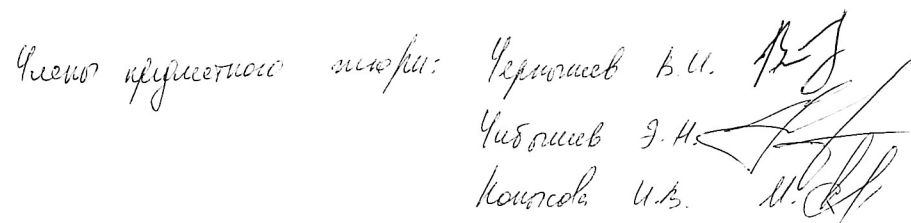 Члены предметного жюри: Чернышев В.И.
Чибышев Э.Н.
Конькова И.В.